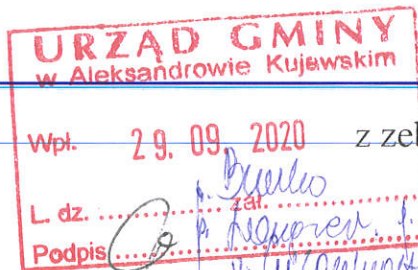 URZĄD GMINY
w Aleksandrowie Kujawskim
Wpł. 29. 09. 2020 z zeb
zał.
L. dz.
Podpis